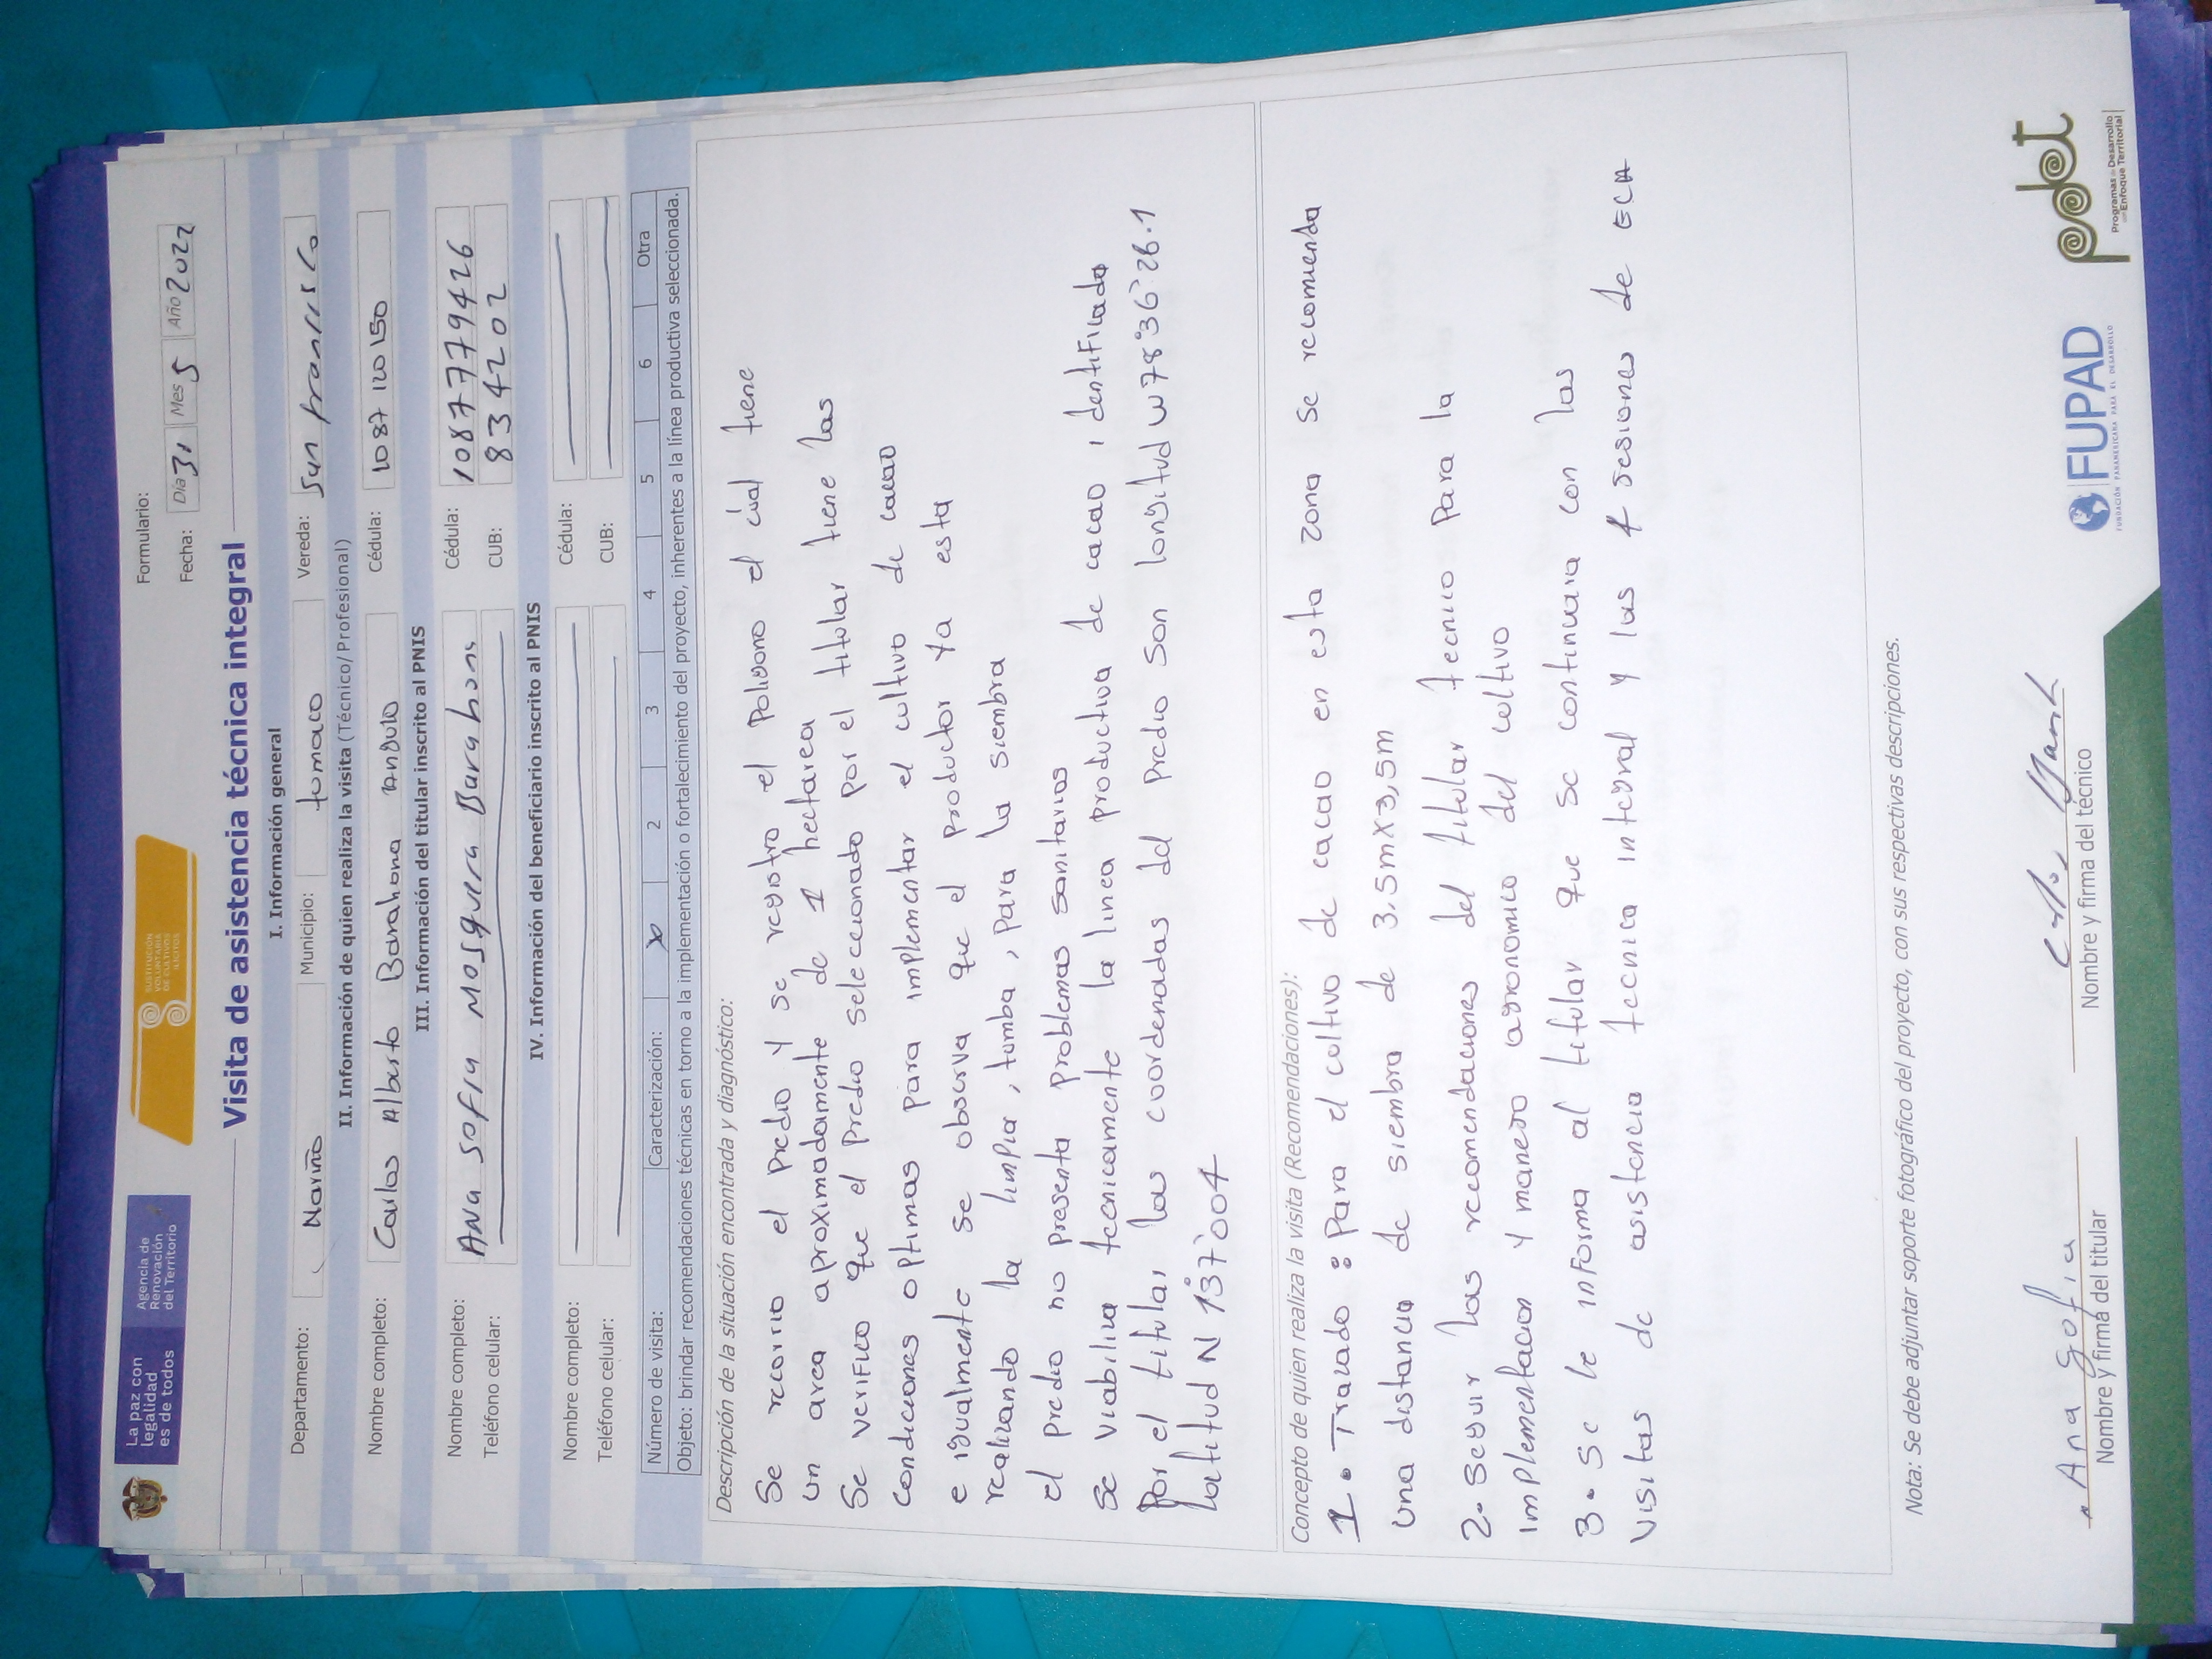 La paz con
legalidad
es de todos
Agencia de
Renovación
del Territorio
SUSTITUCIÓN
VOLUNTARIA
DE CULTIVOS
ILÍCITOS
Formulario:
Fecha: Día 31 Mes 5 Año 2022
Visita de asistencia técnica integral
I. Información general
Departamento: Nariño Municipio: tumaco Vereda: San francisco
II. Información de quien realiza la visita (Técnico/Profesional)
Nombre completo: Carlos Alberto Barahona Angulo Cédula: 1087120150
III. Información del titular inscrito al PNIS
Nombre completo: Ana Sofia Mosquera Barahona Cédula: 1087779426
Teléfono celular: CUB: 834202
IV. Información del beneficiario inscrito al PNIS
Nombre completo: Cédula:
Teléfono celular: CUB:
Número de visita: Caracterización: X 2 3 4 5 6 Otra
Objeto: brindar recomendaciones técnicas en torno a la implementación o fortalecimiento del proyecto, inherentes a la línea productiva seleccionada.
Descripción de la situación encontrada y diagnóstico:
Se recorrio el predio y se registro el poligono el cual tiene
un area aproximadamente de 1 hectarea
Se verifico que el predio seleccionado por el titular tiene las
condiciones optimas para implementar el cultivo de cacao
e igualmente se observa que el productor ya esta
realizando la limpia, tumba, para la siembra
el predio no presenta problemas sanitarios
se viabiliza tecnicamente la linea productiva de cacao identificada
por el titular las coordenadas del predio son longitud W 78°36'28.1
latitud N 1°37'004
Concepto de quien realiza la visita (Recomendaciones):
1. Trazado: Para el cultivo de cacao en esta zona se recomienda
una distancia de siembra de 3.5m x 3,5m
2. Seguir las recomendaciones del titular tecnico para la
implementacion y manejo agronomico del cultivo
3. Se le informa al titular que se continuara con las
visitas de asistencia tecnica integral y las 4 sesiones de ECA
Nota: Se debe adjuntar soporte fotográfico del proyecto, con sus respectivas descripciones.
Ana Sofia
Nombre y firma del titular
Nombre y firma del técnico
FUPAD
FUNDACIÓN PANAMERICANA PARA EL DESARROLLO
pdet
Programas de Desarrollo
con Enfoque Territorial